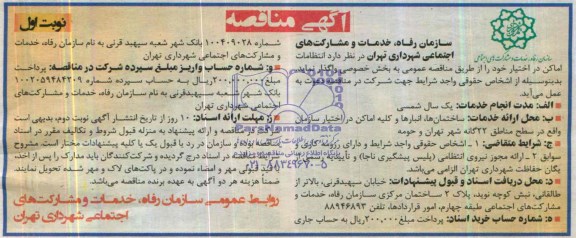 آگهی مناقصه
نوبت اول
سازمان رفاه، خدمات و مشارکت‌های
اجتماعی شهرداری تهران در نظر دارد انتظامات
اماکن در اختیار خود را از طریق مناقصه عمومی به بخش خصوصی واگذار نماید
بدینوسیله از اشخاص حقوقی واجد شرایط جهت شرکت در مناقصه دعوت به
عمل می‌آید.
الف: مدت انجام خدمات: یک سال شمسی
ب: محل ارائه خدمات: ساختمان‌ها، انبارها و کلیه اماکن در اختیار سازمان
واقع در سطح مناطق ۲۲گانه شهر تهران و حومه
ج: شرایط متقاضی: ۱ ـ اشخاص حقوقی واجد شرایط و دارای رزومه کاری و
سوابق ۲ ـ ارائه مجوز نیروی انتظامی (پلیس پیشگیری ناجا) و تأییدیه
یگان حفاظت شهرداری تهران الزامی می‌باشد.
د: محل دریافت اسناد و قبول پیشنهادات: خیابان سپهبدقرنی، بالاتر از
طالقانی، نبش کوچه نوید، پلاک ۲ ساختمان مرکزی سازمان رفاه، خدمات و
مشارکت‌های اجتماعی طبقه چهارم، امور قراردادها، تلفن ۸۸۹۴۶۸۹۳
ه: شماره حساب خرید اسناد: پرداخت مبلغ ۲۰۰٫۰۰۰ریال به حساب جاری
شماره ۱۰۰۴۰۹۰۲۸ بانک شهر شعبه سپهبد قرنی به نام سازمان رفاه، خدمات
و مشارکت‌های اجتماعی شهرداری تهران
و: شماره حساب واریز مبلغ سپرده شرکت در مناقصه: پرداخت
بانک شهر شعبه سپهبدقرنی به نام سازمان رفاه، خدمات و مشارکت‌های
اجتماعی شهرداری تهران
ز: مهلت ارائه اسناد: ۱۰ روز از تاریخ انتشار آگهی نوبت دوم، بدیهی است
شرکت در مناقصه و ارائه پیشنهاد به منزله قبول شروط و تکالیف مقرر در اسناد
مناقصه بوده و سازمان در رد یا قبول یک یا کلیه پیشنهادات مختار است. مشروح
شرایط مناقصه در اسناد درج گردیده و شرکت‌کنندگان باید مدارک را پس از اخذ،
تأیید قبولی مهر و امضاء نموده و در پاکت‌های لاک و مهر شده تحویل نمایند.
ضمناً هزینه هر دو آگهی به عهده برنده مناقصه می‌باشد.
روابط عمومی سازمان رفاه، خدمات و مشارکت‌های
اجتماعی شهرداری تهران
ParsNamadData